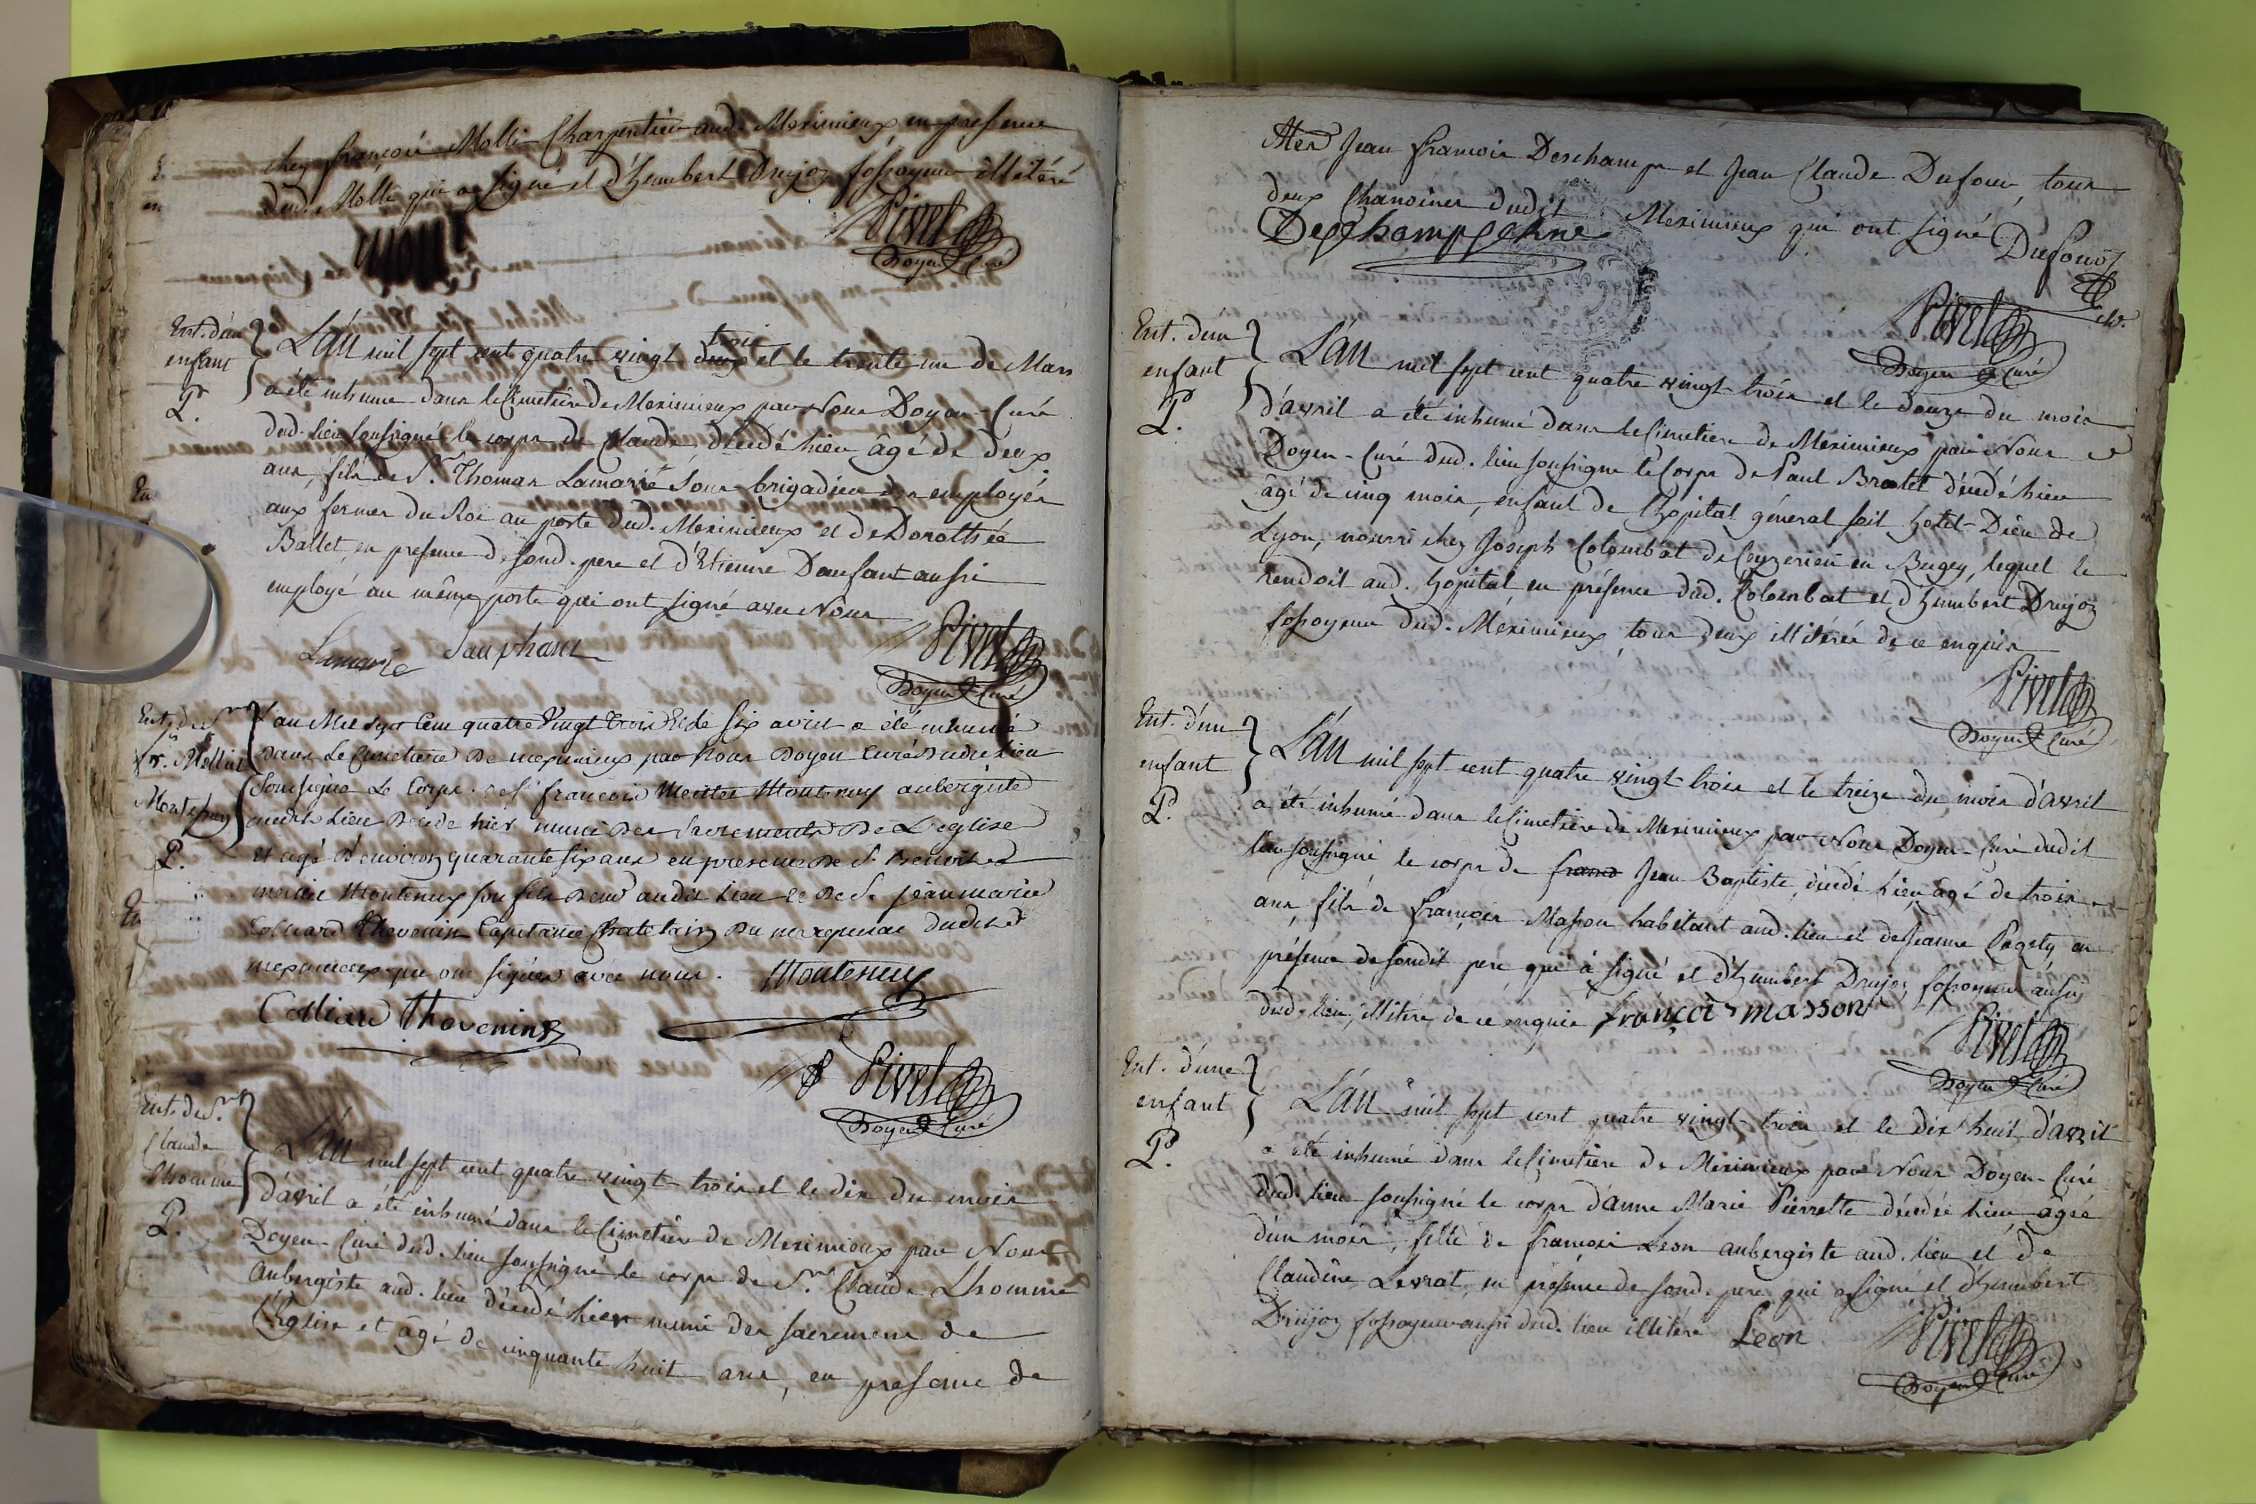 chez françois Molli Charpentier aud. Meximieux, en presence
dud. Molli qui a signé et d'humbert Drujoz fossoyeur illitéré
Molli
Pivet
Doyen & Curé
Ent. d'un
enfant
P.
L'an mil sept cent quatre vingt trois et le trente un de Mars
a été inhumé dans le Cimetiere de Meximieux par Nous Doyen-Curé
dud. lieu soussigné le corps de Claude, décédé hier âgé de deux
ans, fils de Sr. Thomas Lamarie sous brigadier des employés
aux fermes du Roi au poste dud. Meximieux et de Dorothée
Ballet, en presence de sond. pere et d'Etienne Daufant aussi
employé au même poste qui ont signé avec Nous
Lamarie
Dauphant
Pivet
Doyen & Curé
Ent. de Sr.
fr. Mellier
Montenuy
P.
L'an Mil sept Cent quatre Vingt trois Et le six avril a été inhumé
dans Le Cimetiere De meximieux par Nous Doyen Curé Dudit Lieu
Soussigné Le Corps de Sr françois Montenuy aubergiste
audit Lieu Decede hier muni Des sacrements De L'eglise
et agé d'environ quarante six ans en presence De Sr Benoit
Montenuy son fils Demt audit Lieu et De Sr jean marie
Colliard Thevenin Capitaine Chatelain Du marquisat Dudit
meximieux qui ont signés avec nous. Montenuy
Colliard Thevenin
Pivet
Doyen & Curé
Ent. de Sr.
Claude
Lhomme
P.
L'an mil sept cent quatre vingt-trois et le dix du mois
d'avril a été inhumé dans le Cimetiere de Meximieux par Nous
Doyen-Curé dud. lieu soussigné le corps de Sr. Claude Lhomme
Aubergiste aud. lieu décédé hier muni des sacremens de
l'Eglise et âgé de cinquante huit ans, en presence de
Jean francois Deschamps et Jean Claude Dufour, tous
deux Chanoines dudit Meximieux qui ont signé
Deschamps chne
Dufour
ch.
Pivet
Doyen & Curé
Ent. d'un
enfant
P.
L'an mil sept cent quatre vingt-trois et le douze du mois
d'avril a été inhumé dans le Cimetiere de Meximieux par Nous
Doyen-Curé dud. lieu soussigné le Corps de Paul Brotet décédé hier
âgé de cinq mois, enfant de l'hopital général soit hotel-Dieu de
Lyon, nourri chez Joseph Colombat de Ceyzerieu en Bugey, lequel le
rendoit aud. hopital en présence dud. Colombat et d'humbert Drujoz
fossoyeur dud. Méximieux, tous deux illitérés de ce enquis
Pivet
Doyen & Curé
Ent. d'un
enfant
P.
L'an mil sept cent quatre vingt-trois et le treize du mois d'avril
a été inhumé dans le Cimetiere de Meximieux par Nous Doyen-Curé dudit
lieu soussigné le corps de Jean Baptiste, décédé hier âgé de trois
ans, fils de françois Masson habitant aud. lieu et de Jeanne Pagety en
présence de sondit pere qui a signé et d'humbert Drujoz fossoyeur aussi
dud. lieu, illitéré de ce enquis françois masson
Pivet
Doyen & Curé
Ent. d'une
enfant
P.
L'an mil sept cent quatre vingt-trois et le dix huit d'avril
a été inhumé dans le Cimetiere de Meximieux par Nous Doyen-Curé
dud. lieu soussigné le corps d'anne Marie Pierrette décédée hier agée
d'un mois, fille de francois Leon aubergiste aud. lieu et de
Claudine Levrat, en présence de sond. pere qui a signé et d'humbert
Drujoz fossoyeur aussi dud. lieu illitéré
Leon
Pivet
Doyen & Curé